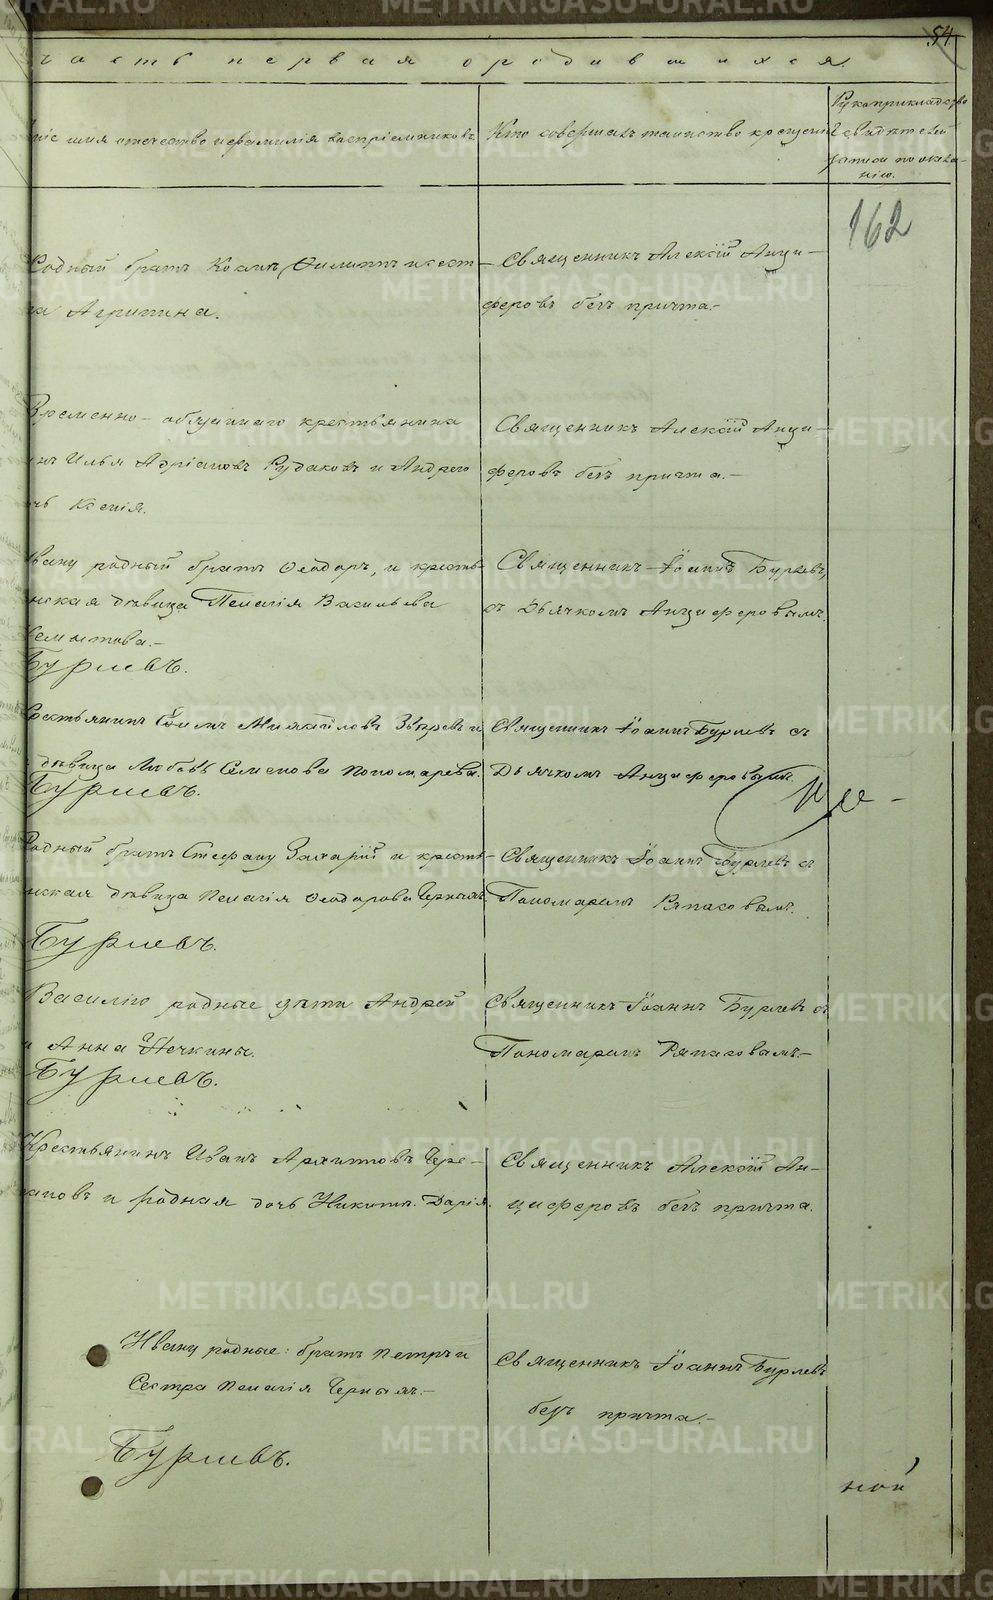 54
часть первая о родившихся.
имя отечество и фамилія воспріемниковъ.
Кто совершалъ таинство крещенія
Рукоприкладство
свидѣтелей
записи по жела-
нію.
162
Родный братъ Филиппъ и сест-
ра Агрипина.
Священникъ Алексій Анци-
феровъ безъ причта.-
Временно-обязаннаго крестьянина
Илья Адріановъ Рудаковъ и Андрея
Ксенія.
Священникъ Алексій Анци-
феровъ безъ причта.-
Ивану родный братъ Ѳеодоръ, и кресть-
янская дѣвица Пелагія Васильева
Бурлевъ.
Священникъ Іоаннъ Бурлевъ,
съ Дьячкомъ Анциферовымъ.
Крестьянинъ Михайловъ Звѣревъ и
дѣвица Любовь Семенова Пономарева.
Бурлевъ.
Священникъ Іоаннъ Бурлевъ съ
Дьячкомъ Анциферовымъ.
Родный братъ Стефану Захарій и кресть-
янская дѣвица Пелагія Ѳеодорова Черныхъ.
Бурлевъ.
Священникъ Іоаннъ Бурлевъ съ
Пономаремъ Ряпасовымъ.
Василію родные дѣти Андрей
и Анна Печкины.
Бурлевъ.
Священникъ Іоаннъ Бурлевъ съ
Пономаремъ Ряпасовымъ.-
Крестьянинъ Иванъ Архиповъ Чере-
пановъ и родная дочь Никиты Дарія.
Священникъ Алексій Ан-
циферовъ безъ причта.
Ивану родные: братъ Петръ и
Сестра Пелагія Черныхъ.-
Бурлевъ.
Священникъ Іоаннъ Бурлевъ
безъ причта.-
ной
METRIKI.GASO-URAL.RU